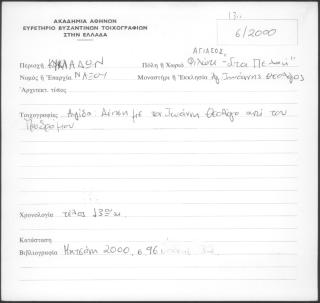 ΑΚΑΔΗΜΙΑ ΑΘΗΝΩΝ
ΕΥΡΕΤΗΡΙΟ ΒΥΖΑΝΤΙΝΩΝ ΤΟΙΧΟΓΡΑΦΙΩΝ
ΣΤΗΝ ΕΛΛΑΔΑ
6/2000
ΑΓΙΑΣΣΟΣ
Περιοχή ΚΥΚΛΑΔΩΝ Πόλη ή Χωριό Φιλώτι - "Στα
Νομός ή Επαρχία ΝΑΞΟΥ Μοναστήρι ή Εκκλησία Αγ Ιωάννης Θεολόγος
Αρχιτεκτ. τύπος
Τοιχογραφίες Αψίδα: Δέηση με τον Ιωάννη Θεολόγο αντί του
Προδρόμου
Χρονολογία τέλος 13ου αι.
Κατάσταση
Βιβλιογραφία Μητσάνη 2000, σ. 96